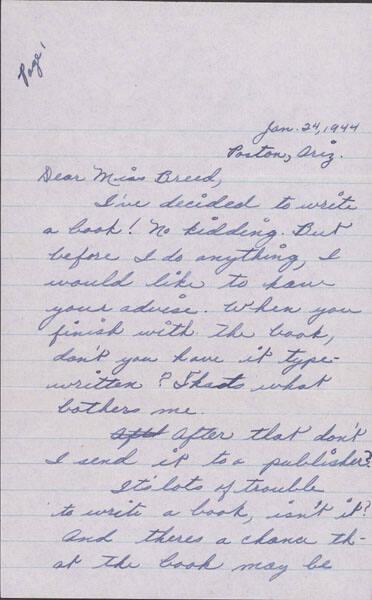 Page 1
Jan. 24, 1944
Poston, Ariz.
Dear Miss Breed,
I've decided to write
a book! No kidding. But
before I do anything, I
would like to have
your advise. When you
finish with the book,
don't you have it type-
written? Thats what
bothers me.
After that don't
I send it to a publisher?
It's lots of trouble
to write a book, isn't it?
And theres a chance th-
at the book may be